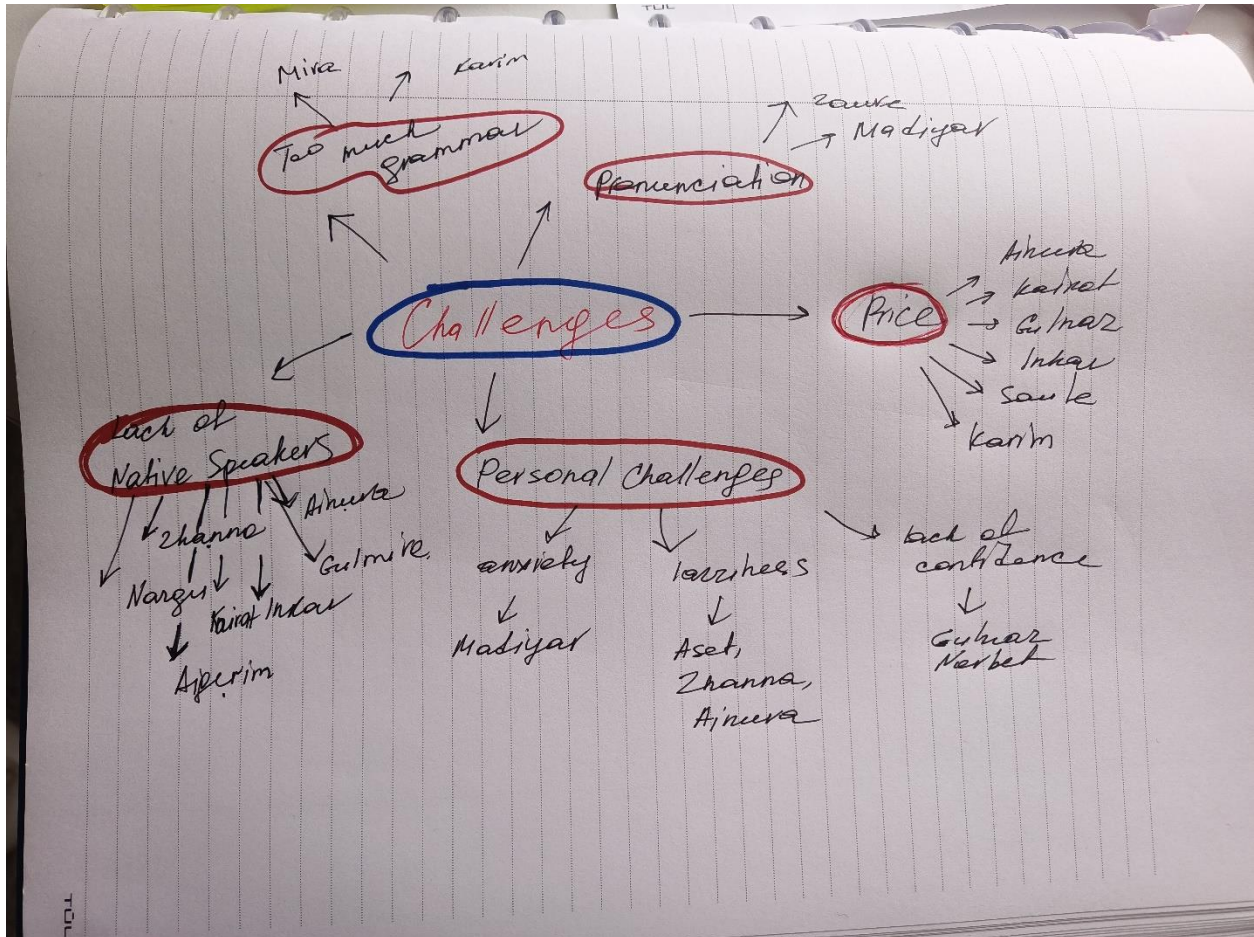 TÜL
Mira
Karim
Too much
grammar
Zaure
Madiyar
Pronunciation
Challenges
Price
Ainura
Kairat
Gulnaz
Inkar
Saule
Karim
Lack of
Native Speakers
Zhanna
Ainura
Nargu
Kairat Inkar
Gulmira
Aigerim
Personal Challenges
anxiety
Madiyar
lazziness
Aset,
Zhanna,
Ainura
Lack of
confidence
Gulnaz
TÜL